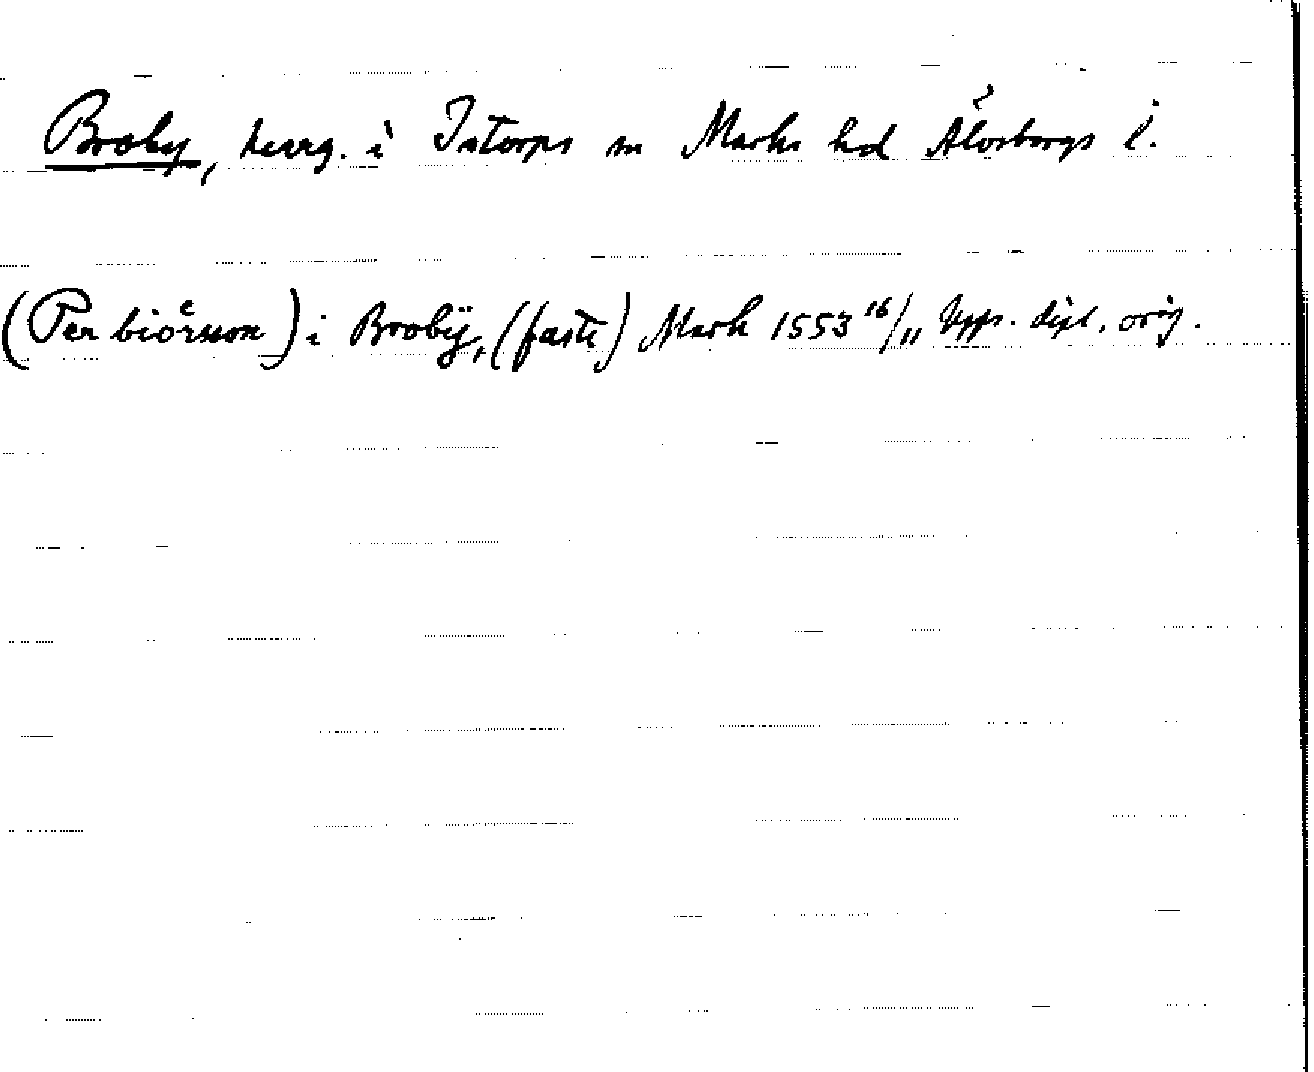 Broby, herrg. i Istorps sn Marks hd Älvsborgs l.
(Per biörsson) i Brobÿ, (faste) Mark 1553 16/11 Upps. dipl. orig.